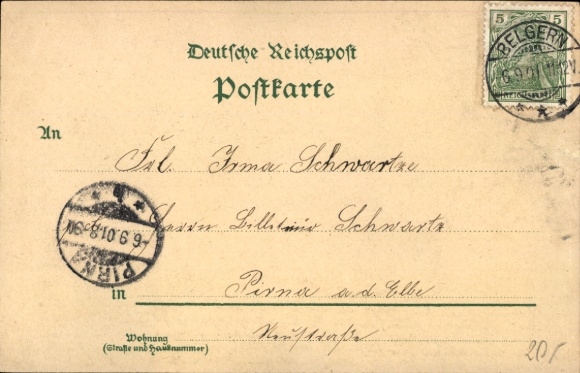 5 5
BELGERN
6.9.01.11-12V.
Deutsche Reichspost
Postkarte
An
Frl. Irma Schwartze
Herrn Schwartz
-6.9.01.8-9N
PIRNA
in Pirna a. d. Elbe
Neustraße
Wohnung
(Straße und Hausnummer)
20,-